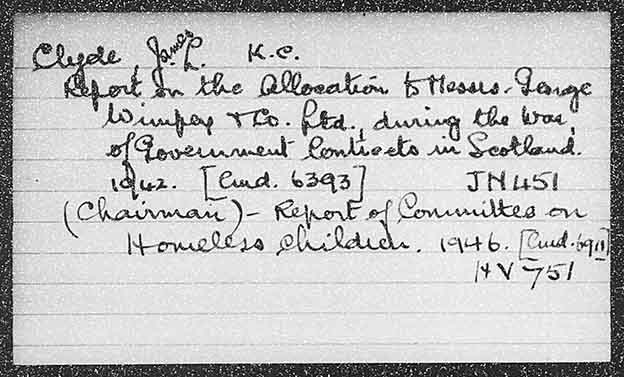 Clyde, James L. K.C.
Report on the Allocation to Messrs. George
Wimpey & Co. Ltd., during the War,
of Government Contracts in Scotland.
1942. [Cmd. 6393] JN 451
(Chairman) - Report of Committee on
Homeless Children. 1946. [Cmd. 6911]
HV 751